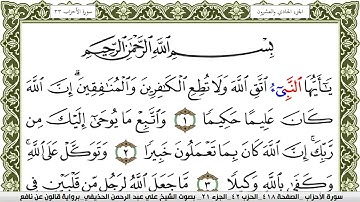 الجزء الحادي والعشرون
سورة الأحزاب ٣٣
بِسْمِ اللَّهِ الرَّحْمَٰنِ الرَّحِيمِ
يَٰأَيُّهَا النَّبِيٓءُ اتَّقِ اللَّهَ وَلَا تُطِعِ الْكَٰفِرِينَ وَالْمُنَٰفِقِينَ إِنَّ اللَّهَ
كَانَ عَلِيمًا حَكِيمًا ١ وَاتَّبِعْ مَا يُوحَىٰ إِلَيْكَ مِن
رَّبِّكَ إِنَّ اللَّهَ كَانَ بِمَا تَعْمَلُونَ خَبِيرًا ٢ وَتَوَكَّلْ عَلَى اللَّهِ
وَكَفَىٰ بِاللَّهِ وَكِيلًا ٣ مَّا جَعَلَ اللَّهُ لِرَجُلٍ مِّن قَلْبَيْنِ فِي
سورة الأحزاب . الصفحة ٤١٨ الحزب ٤٢ . الجزء ٢١ . بصوت الشيخ علي عبد الرحمن الحذيفي . برواية قالون عن نافع